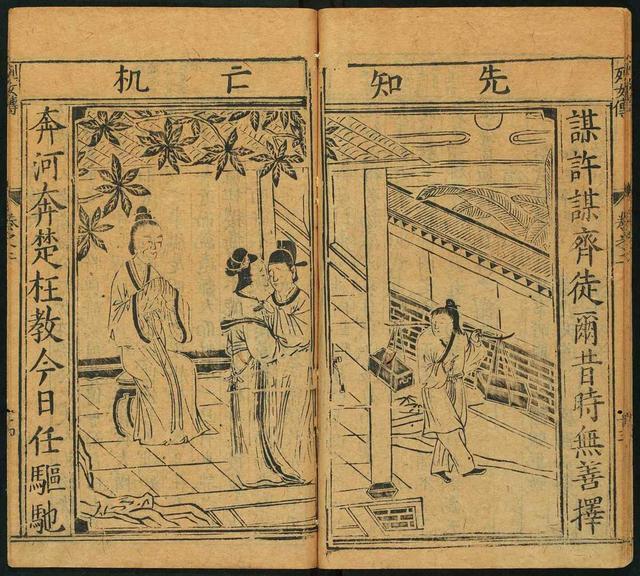 先知亡机
謀許謀齊徒爾昔時無善擇
奔河奔楚枉教今日任驅馳
列女傳
卷之二
列女傳
卷之二